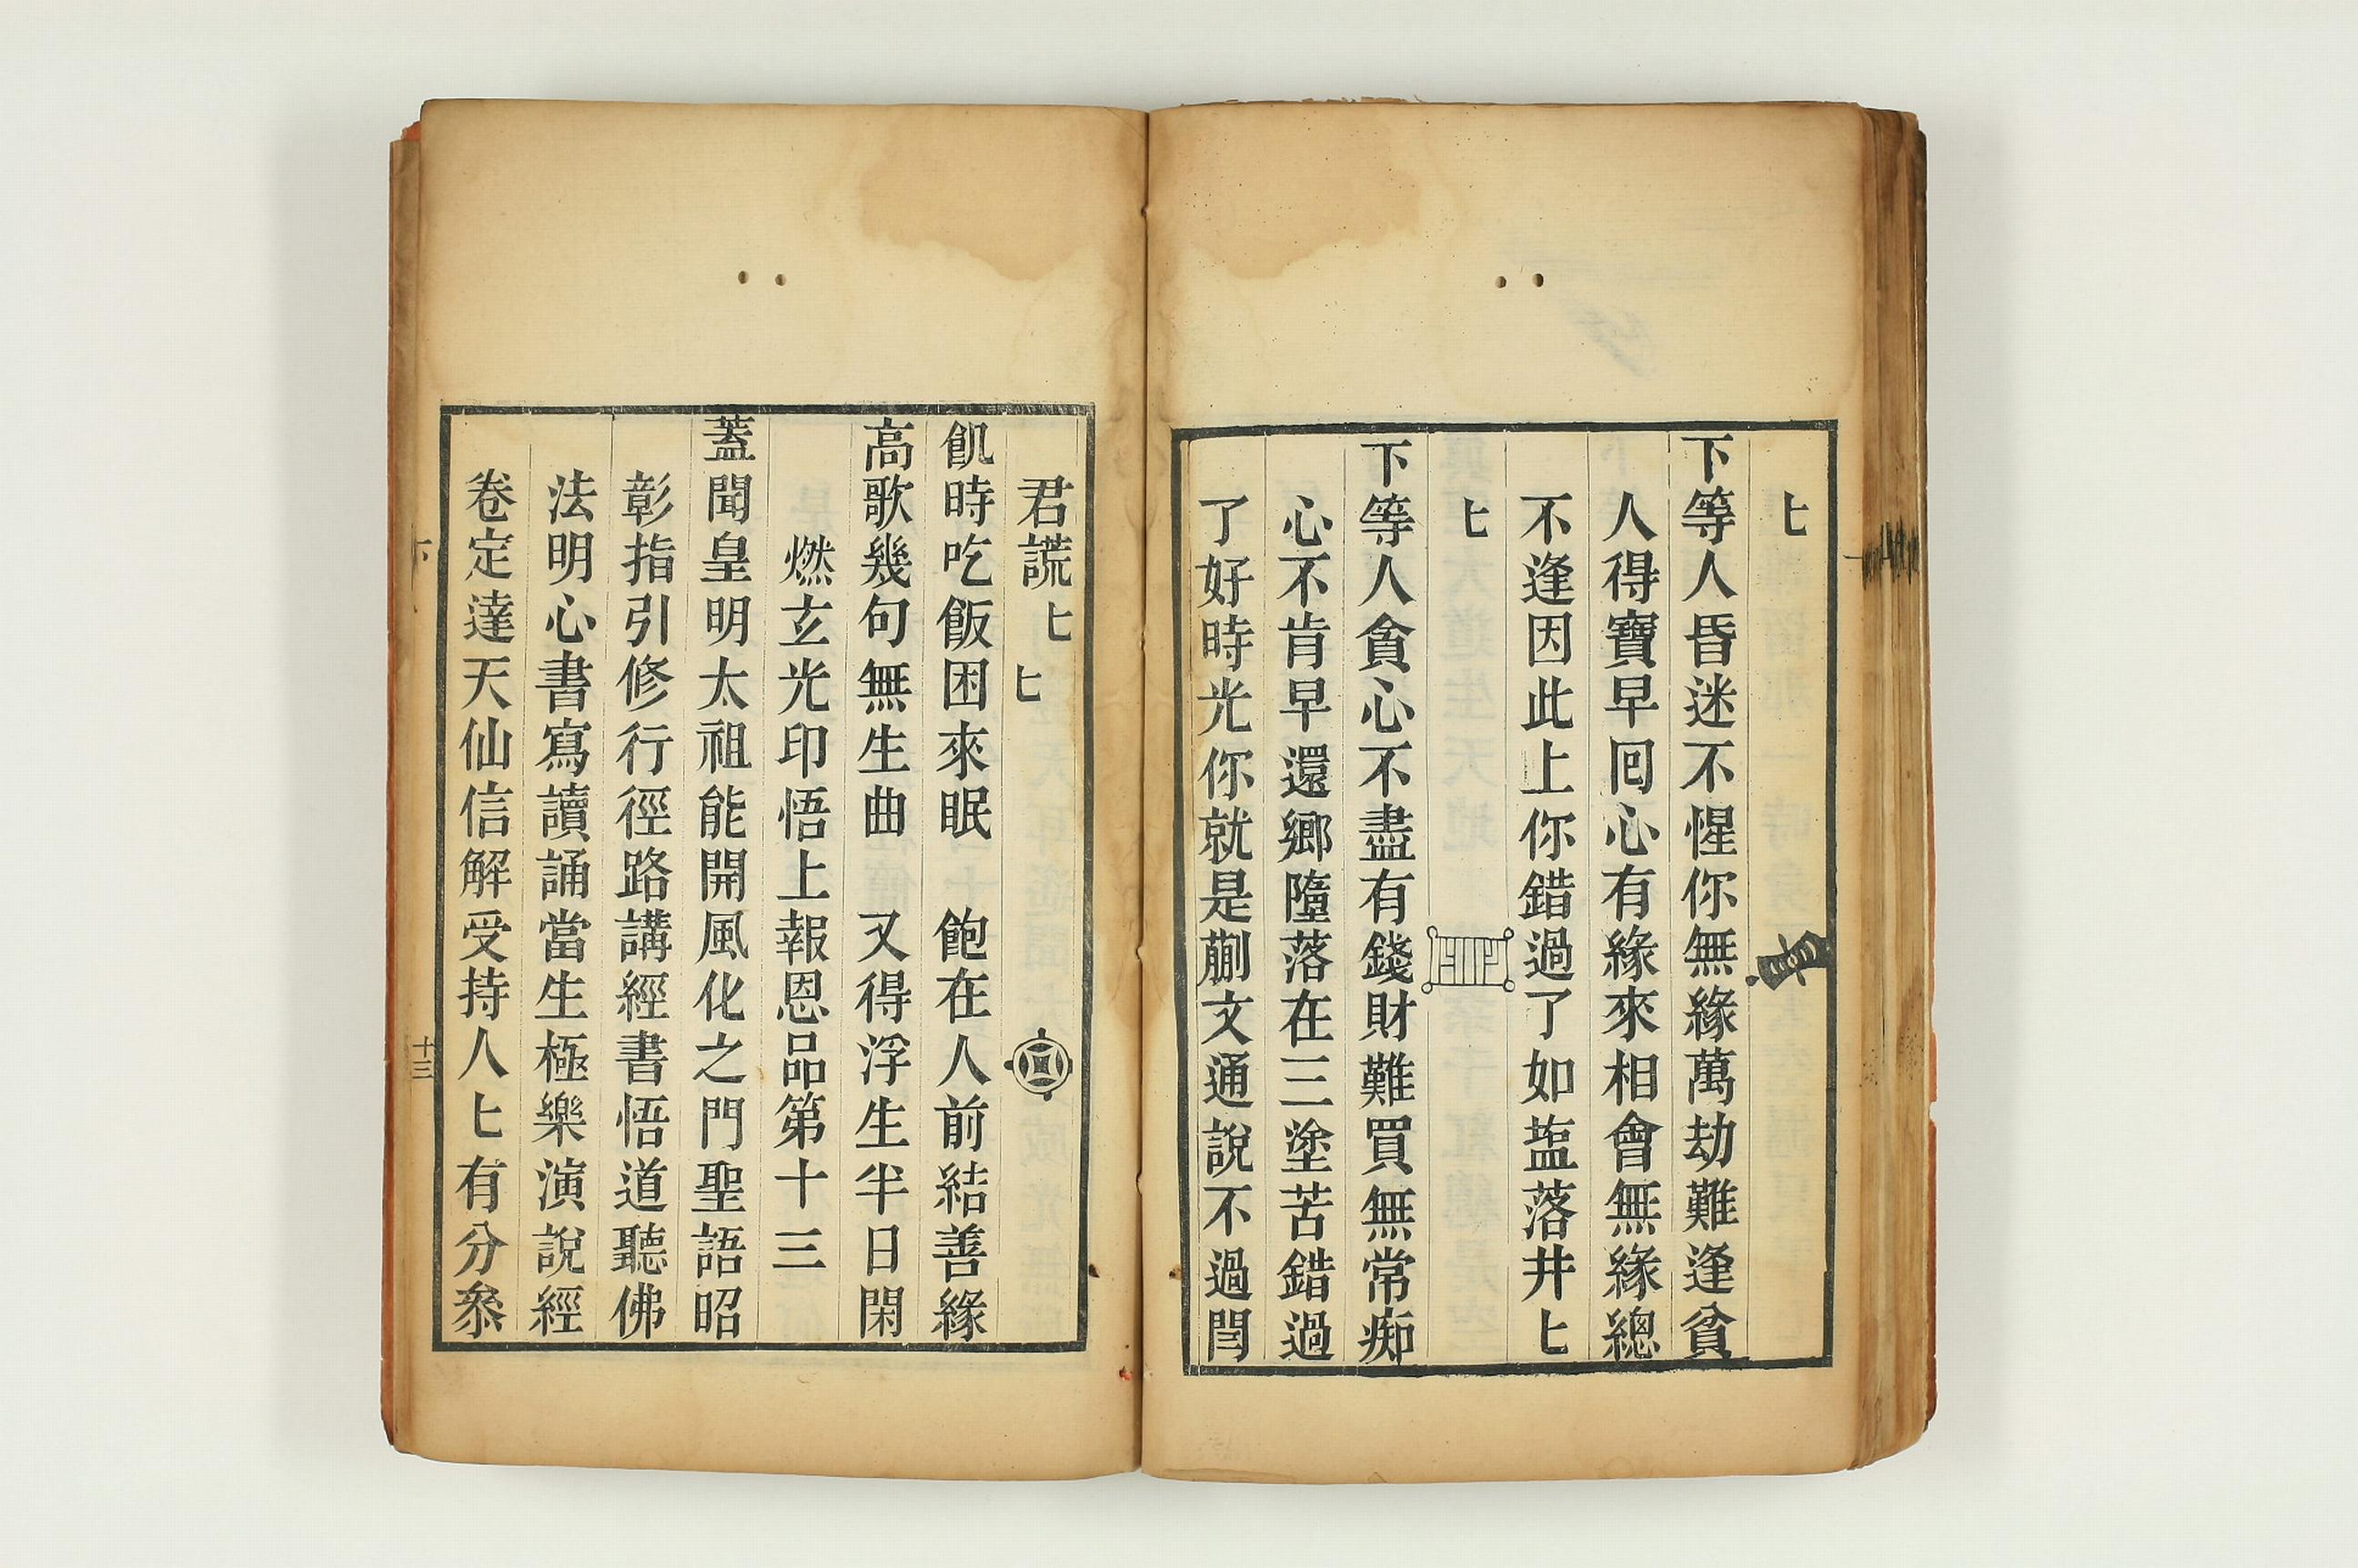 匕
下等人昏迷不惺你無緣萬劫難逢貧
人得寶早囘心有緣來相會無緣總
不逢因此上你錯過了如盐落井匕
匕
下等人貪心不盡有錢財難買無常痴
心不肯早還鄉墮落在三塗苦錯過
了好時光你就是蒯文通說不過閆
君謊匕
匕
飢時吃飯困來眠　飽在人前結善緣
高歌幾句無生曲　又得浮生半日閑
燃玄光印悟上報恩品第十三
蓋聞皇明太祖能開風化之門聖語昭
彰指引修行徑路講經書悟道聽佛
法明心書寫讀誦當生極樂演說經
卷定達天仙信解受持人匕有分叅
下
十三